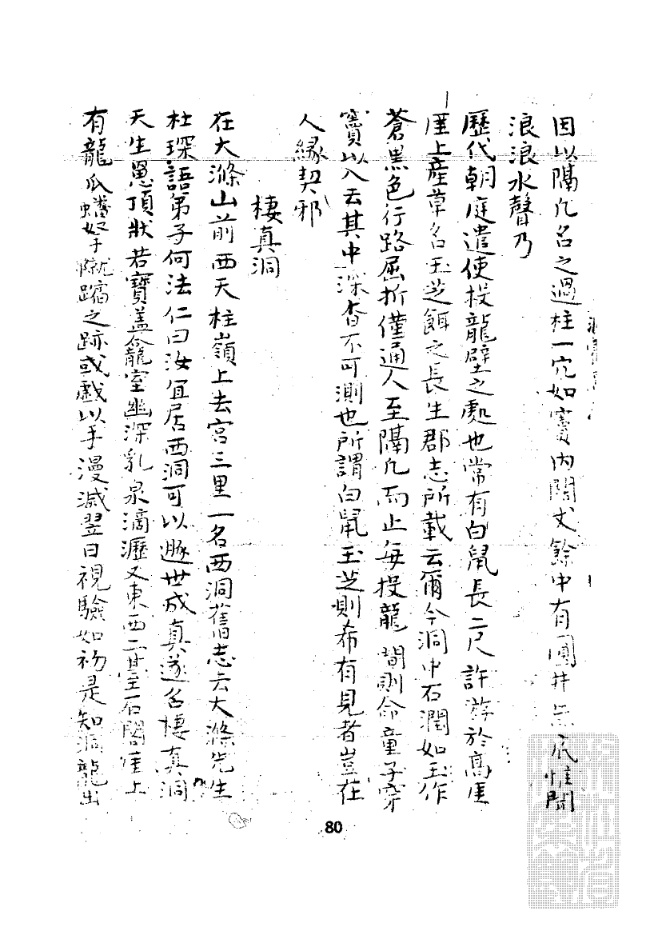 因以隔凡名之過柱一穴如竇内闊丈餘中有圓井無底惟聞
浪浪水聲乃
歷代朝庭遣使投龍壁之處也常有白鼠長二尺許游於高崖
崖上產草名玉芝餌之長生郡志所載云爾今洞中石潤如玉作
蒼黑色行路屈折僅通人至隔凡而止每投龍簡則命童子穿
竇以入云其中深杳不可測也所謂白鼠玉芝則希有見者豈在
人緣契邪
棲真洞
在大滌山前西天柱嶺上去宮三里一名西洞舊志云大滌先生
杜琛語弟子何法仁曰汝宜居西洞可以遯世成真遂名棲真洞
天生嵌頂狀若寶盖龕室幽深乳泉滴瀝又東西二石閣崖上
有龍爪蟠拏蹴蹋之跡或戲以手漫滅翌日視驗如初是知洞龍出
80